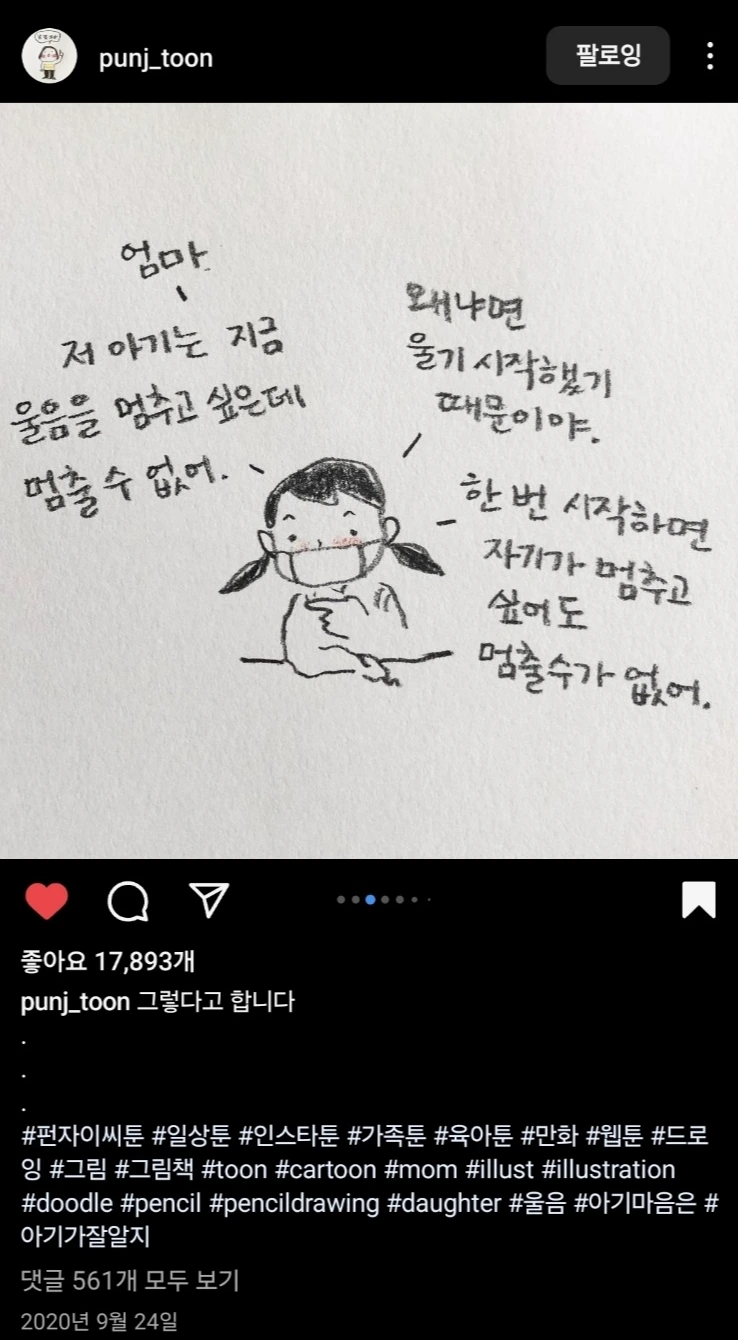 punj_toon
팔로잉
엄마
저 아기는 지금
울음을 멈추고 싶은데
멈출 수 없어.
왜냐면
울기 시작했기
때문이야.
한 번 시작하면
자기가 멈추고
싶어도
멈출수가 없어.
좋아요 17,893개
punj_toon 그렇다고 합니다
.
.
.
#펀자이씨툰 #일상툰 #인스타툰 #가족툰 #육아툰 #만화 #웹툰 #드로
잉 #그림 #그림책 #toon #cartoon #mom #illust #illustration
#doodle #pencil #pencildrawing #daughter #울음 #아기마음은 #
아기가잘알지
댓글 561개 모두 보기
2020년 9월 24일